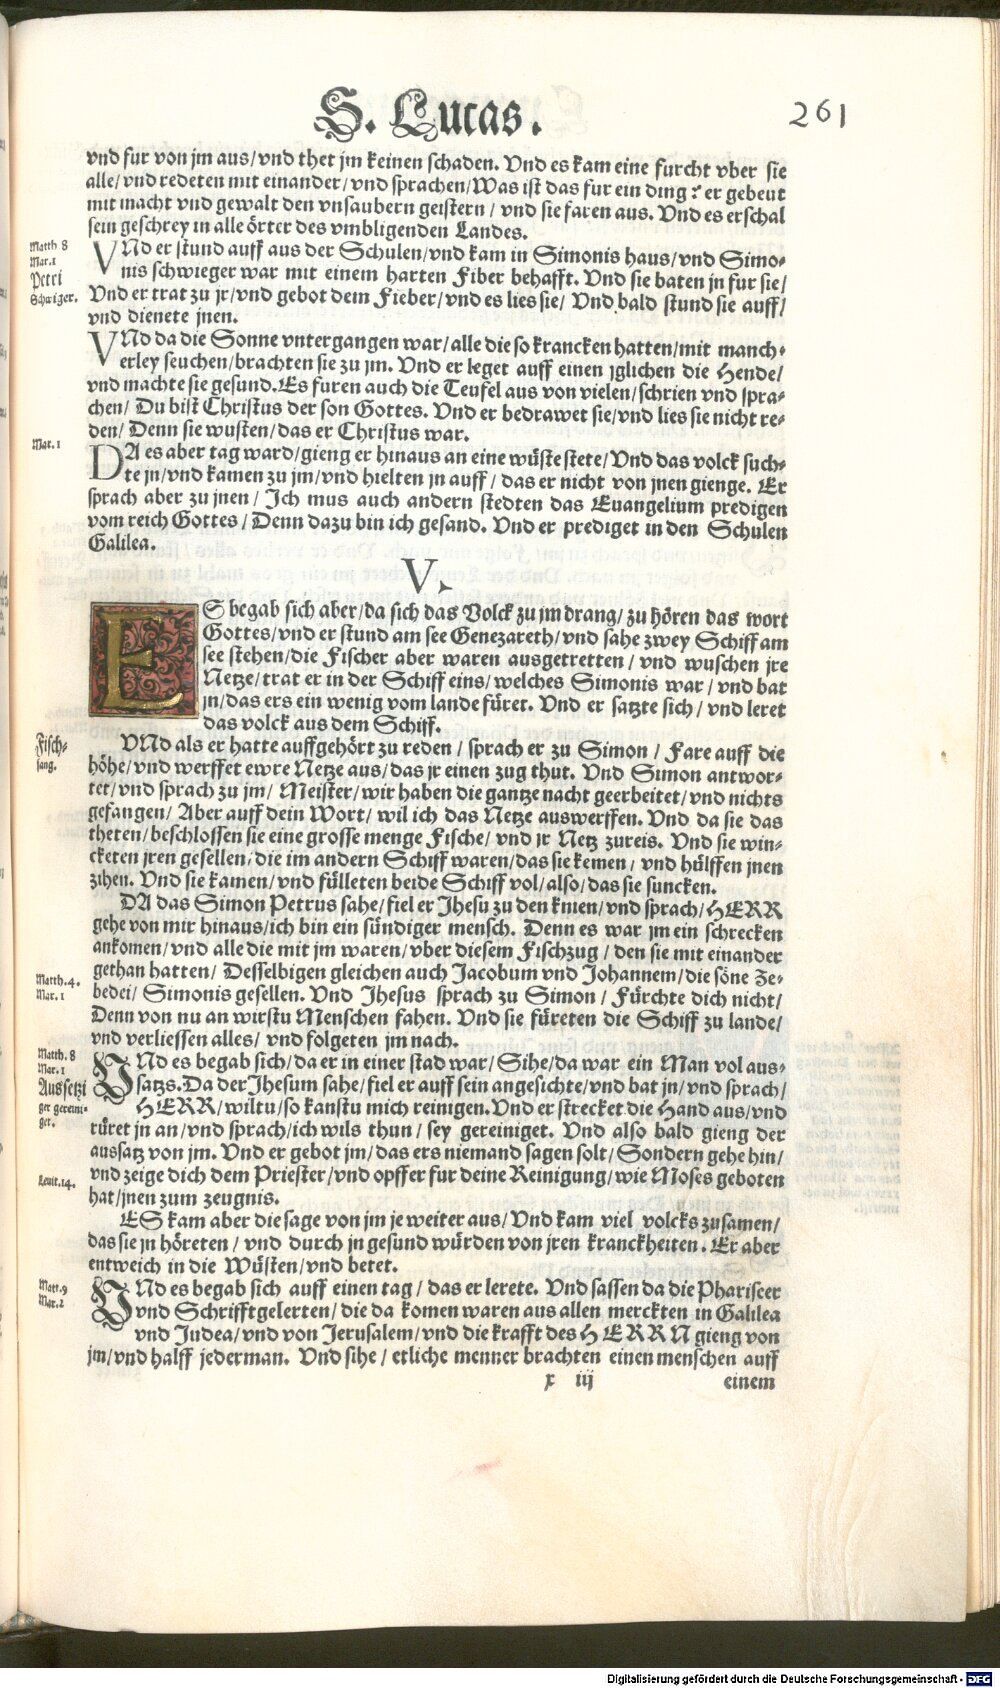 S. Lucas.
261
vnd fur von jm aus/vnd thet jm keinen schaden. Vnd es kam eine furcht vber sie
alle/vnd redeten mit einander/vnd sprachen/Was ist das fur ein ding? er gebeut
mit macht vnd gewalt den vnsaubern geistern/ vnd sie faren aus. Vnd es erschal
sein geschrey in alle örter des vmbligenden Landes.
Matth 8
Mar.1
Petri
Schwiger.
VNd er stund auff aus der Schulen/vnd kam in Simonis haus/vnd Simo-
nis schwieger war mit einem harten Fiber behafft. Vnd sie baten jn fur sie/
Vnd er trat zu jr/vnd gebot dem Fieber/vnd es lies sie/ Vnd bald stund sie auff/
vnd dienete jnen.
VNd da die Sonne vntergangen war/alle die so krancken hatten/mit manch-
erley seuchen/brachten sie zu jm. Vnd er leget auff einen jglichen die Hende/
vnd machte sie gesund. Es furen auch die Teufel aus von vielen/schrien vnd spra-
chen/ Du bist Christus der son Gottes. Vnd er bedrawet sie/vnd lies sie nicht re-
den/ Denn sie wusten/das er Christus war.
Mar. 1
DA es aber tag ward/gieng er hinaus an eine wüste stete/Vnd das volck such-
te jn/vnd kamen zu jm/vnd hielten jn auff/das er nicht von jnen gienge. Er
sprach aber zu jnen/ Ich mus auch andern stedten das Euangelium predigen
vom reich Gottes/Denn dazu bin ich gesand. Vnd er prediget in den Schulen
Galilea.
V.
ES begab sich aber/da sich das Volck zu jm drang/zu hören das wort
Gottes/vnd er stund am see Genezareth/vnd sahe zwey Schiff am
see stehen/die Fischer aber waren ausgetretten/ vnd wuschen jre
Netze/trat er in der Schiff eins/welches Simonis war/vnd bat
jn/das ers ein wenig vom lande fürer. Vnd er satzte sich/vnd leret
das volck aus dem Schiff.
Fisch-
fang.
VNd als er hatte auffgehört zu reden/ sprach er zu Simon/ Fare auff die
höhe/vnd werffet ewre Netze aus/das jr einen zug thut. Vnd Simon antwor-
tet/vnd sprach zu jm/ Meister/wir haben die gantze nacht geerbeitet/vnd nichts
gefangen/ Aber auff dein Wort/ wil ich das Netze auswerffen. Vnd da sie das
theten/beschlossen sie eine grosse menge Fische/ vnd jr Netz zureis. Vnd sie win-
cketen jren gesellen/die im andern Schiff waren/das sie kemen/ vnd hülffen jnen
zihen. Vnd sie kamen/vnd fülleten beide Schiff vol/also/das sie suncken.
DA das Simon Petrus sahe/fiel er Jhesu zu den knien/vnd sprach/HERR
gehe von mir hinaus/ich bin ein sündiger mensch. Denn es war jm ein schrecken
ankomen/vnd alle die mit jm waren/vber diesem Fischzug/ den sie mit einander
gethan hatten/ Desselbigen gleichen auch Jacobum vnd Johannem/die söne Ze-
Matth.4.
Mar. 1
bedei/ Simonis gesellen. Vnd Jhesus sprach zu Simon/ Fürchte dich nicht/
Denn von nu an wirstu Menschen fahen. Vnd sie füreten die Schiff zu lande/
vnd verliessen alles/ vnd folgeten jm nach.
Matth. 8
Mar. 1
Aussetzi
ger gereini-
get.
VNd es begab sich/da er in einer stad war/Sihe/da war ein Man vol aus-
satzs. Da der Jhesum sahe/fiel er auff sein angesichte/vnd bat jn/vnd sprach/
HERR/wiltu/so kanstu mich reinigen. Vnd er strecket die Hand aus/vnd
rüret jn an/vnd sprach/ich wils thun/ sey gereiniget. Vnd also bald gieng der
aussatz von jm. Vnd er gebot jm/das ers niemand sagen solt/Sondern gehe hin/
Leuit.14.
vnd zeige dich dem Priester/vnd opffer fur deine Reinigung/wie Moses geboten
hat/jnen zum zeugnis.
ES kam aber die sage von jm je weiter aus/ Vnd kam viel volcks zusamen/
das sie jn höreten/ vnd durch jn gesund würden von jren kranckheiten. Er aber
entweich in die Wüsten/vnd betet.
Matt.9
Mar.2
VNd es begab sich auff einen tag/das er lerete. Vnd sassen da die Phariseer
vnd Schrifftgelerten/die da komen waren aus allen merckten in Galilea
vnd Judea/vnd von Jerusalem/vnd die krafft des HERRN gieng von
jm/vnd halff jederman. Vnd sihe/ etliche menner brachten einen menschen auff
x iij einem
Digitalisierung gefördert durch die Deutsche Forschungsgemeinschaft - DFG